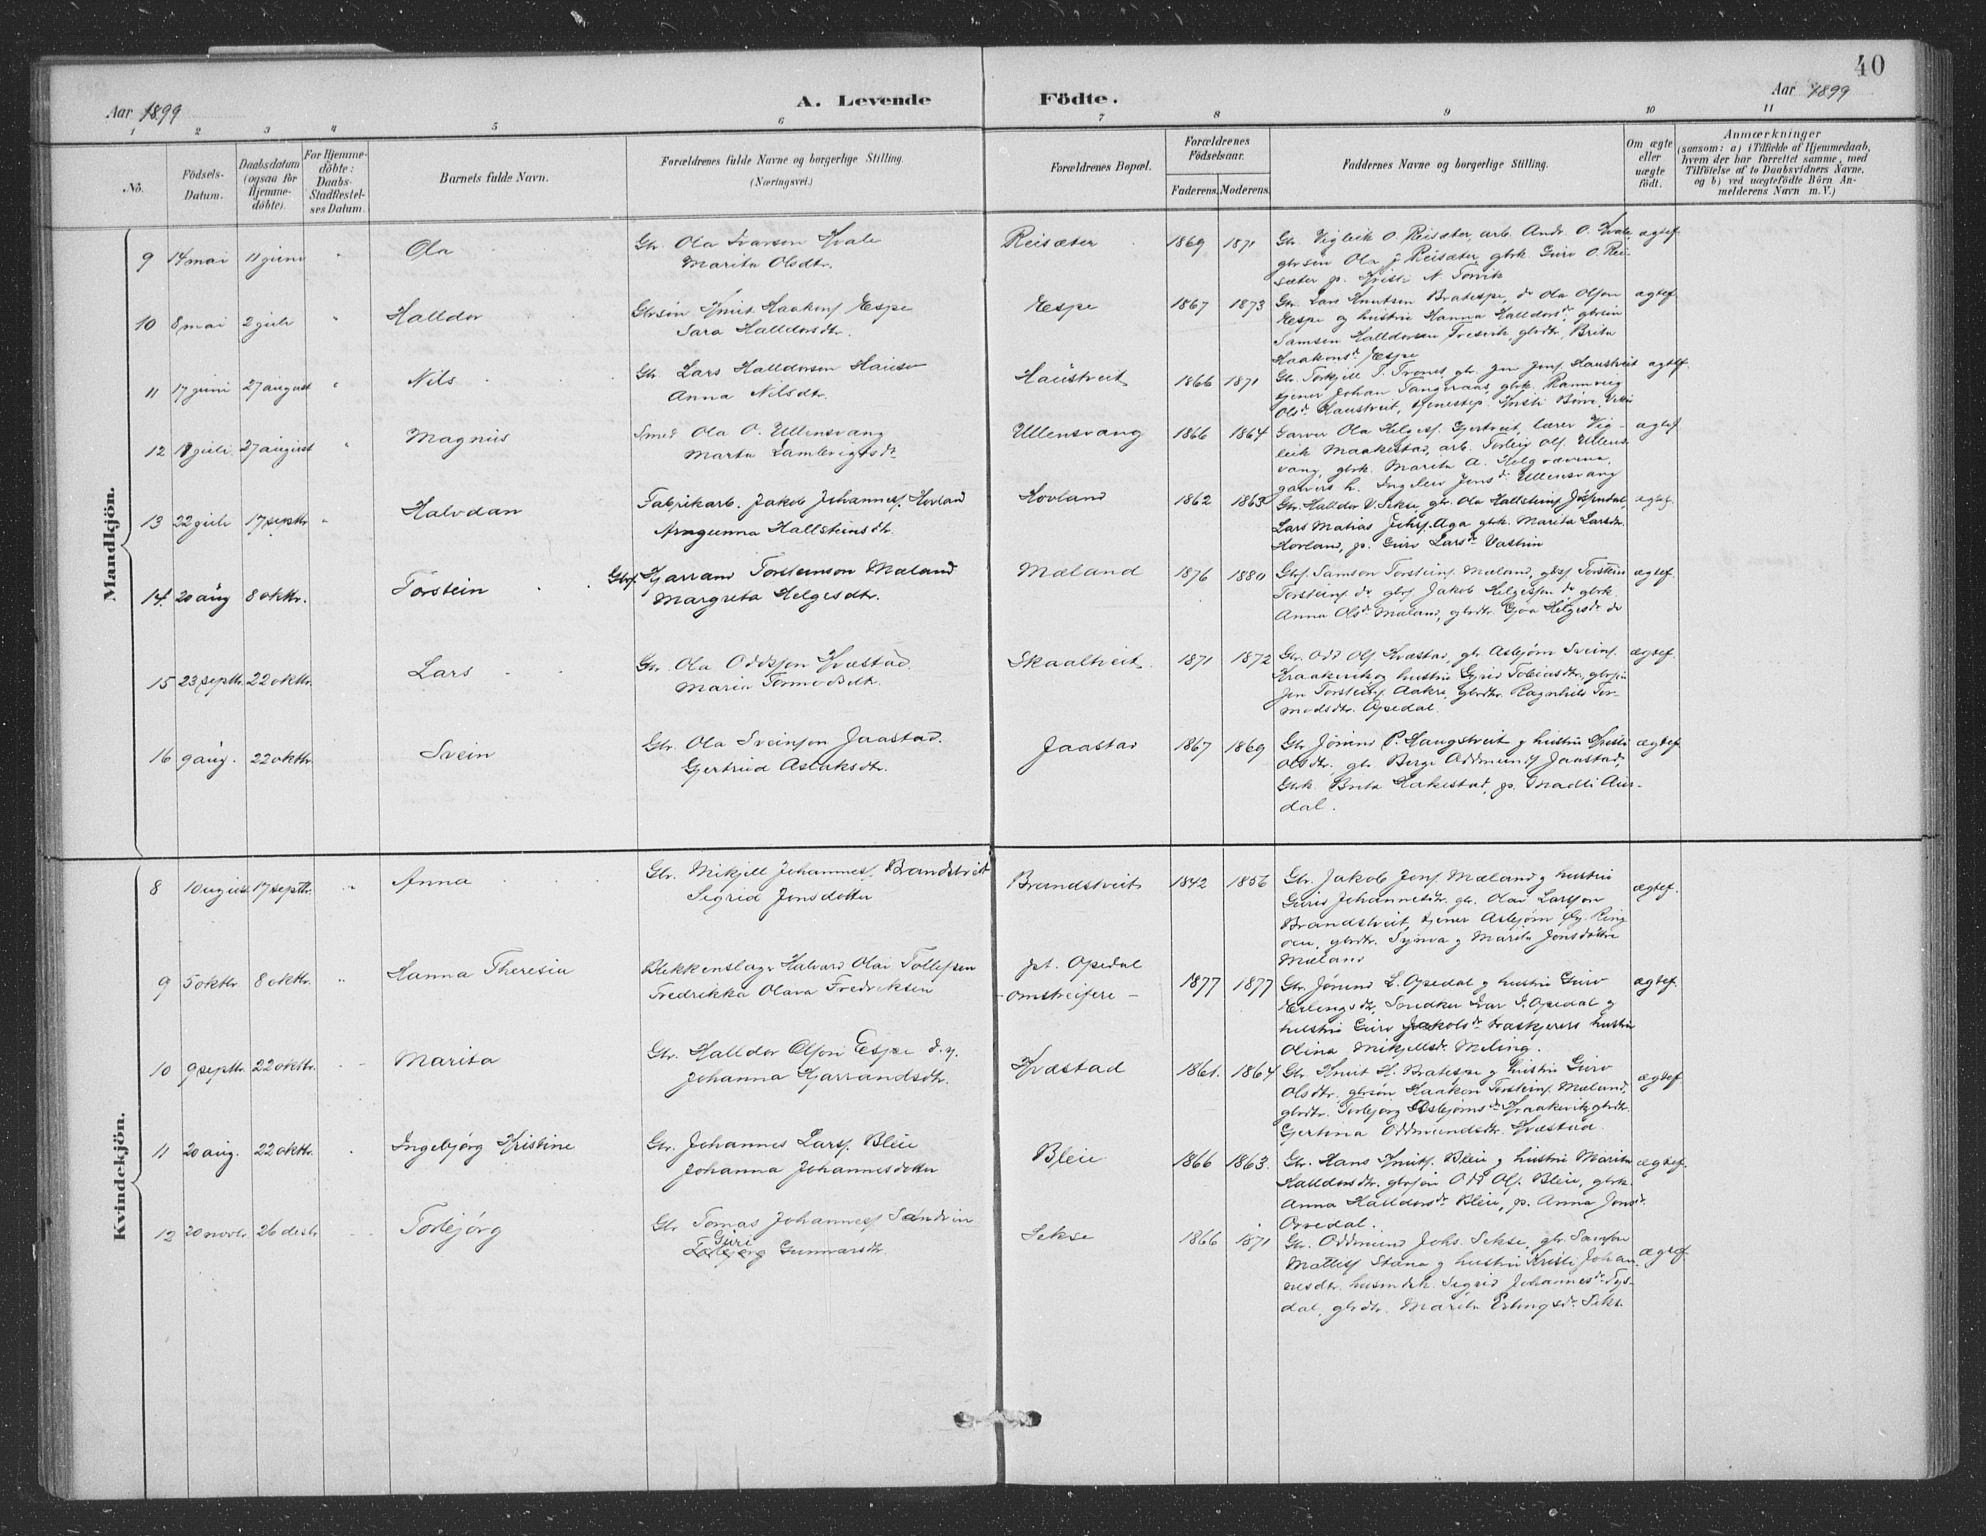 40
Aar 1899
A. Levende Födte.
Aar 1899
1 2 3 4 5 6 7 8 9 10 11
No.
Födsels-Datum.
Daabsdatum (ogsaa for Hjemme-döbte).
For Hjemme-döbte: Daabs-Stadfæstel-ses Datum.
Barnets fulde Navn.
Forældrenes fulde Navne og borgerlige Stilling.
(Næringsvei.)
Forældrenes Bopæl.
Forældrenes Födselsaar.
Faderens. Moderens.
Faddernes Navne og borgerlige Stilling.
Om ægte eller uægte födt.
Anmærkninger
(saasom: a) i Tilfælde af Hjemmedaab,
hvem der har forrettet samme, med
Tilföielse af to Daabsvidners Navne,
og b) ved uægtefödte Börn An-
melderens Navn m. V.)
Mandkjön.
9 14 mai 11 juni " Ola
Gbr. Ola Ivarsen Kvale
Marita Olsdtr.
Reisæter 1869 1871
Gbr. Vigleik O. Reisæter, arb. Andr. O. Kvale,
gbrsön Ola J. Reisæter, gbrk. Guro O. Rei-
sæter, p. Kristi N.
ægtef.
10 8 mai 2 juli " Halldor
Gbrsön Knut Haakons. Espe
Sara Halldorsdtr.
Espe 1867 1873
Gbr. Lars Knutsen Bratespe, do Ola Olsen
Espe og hustru Hanna Halldorsdr, gbrsön
Samson Halldorsen, gbrdtr. Brita
Haakonsdr Espe
ægtef.
11 17 juni 27 august " Nils
Gbr. Lars Halldorsen Hauso
Anna Nilsdtr.
Haustveit 1866 1871
Gbr. Torkjell T. Trones, gbr. Jon Jons. Haustveit
tjener Johan Tangeraas, gbrk. Rannveig
Olsdr Haustveit, tjenestep. Kristi Börve
ægtef.
12 1 juli 27 august " Magnus
Smed Ola O. Ullensvang
Marta Lambrigtsdtr.
Ullensvang 1866 1864
Garver Ola Helges. Gjertveit, lærer Vig-
leik Maakestad, arb. Torleiv Ols. Ullens-
vang, gbrk. Marita A. Helgvaavna,
garvers h. Ingeleiv Jonsdr Ullensvang
ægtef.
13 22 juli 17 septbr " Halvdan
Fabrikarb. Jakob Johanness. Hovland
Arngunna Hallsteinsdtr.
Hovland 1862 1863
Gbr. Halldor V. Sekse, gbr. Ola Hallsteins. Jösendal,
Lars Matias Aga, gbrk. Marita Larsdtr.
Hovland, p. Guro Larsdr
ægtef.
14. 20 aug 8 oktbr. Torstein
Gbrs. Kjarrand Torsteinson Mæland
Margreta Helgesdtr.
Mæland 1876 1880
Gbrs. Samson Torsteins. Mæland, gbrs. Torstein
Torsteins. do, gbrs. Jakob Helgesson do, gbrk.
Anna Olsdr Mæland, gbrdtr. Gjøa Helgesdr do
ægtef.
15 23 septbr. 22 oktbr. Lars
Gbr. Ola Oddsson Kvæstad.
Maria Tormodsdtr.
Skaaltveit. 1871 1872
Gbr. Odd Ols. Kvæstad, gbr. Asbjørn Sveins.
Kraakevik og hustru Gjøri Tobiasdtr., gbrsön
Jon Torsteins. Aakre, gbrdtr. Ragnhild Tor-
modsdtr. Opedal.
ægtef.
16 9 aug. 22 oktbr. Svein
Gbr. Ola Sveinson Jaastad.
Gjertrud Aslaksdtr.
Jaastad 1867 1869
Gbr. Jörund P. Haugstveit og hustru Kristi
Olsdtr. gbr. Berge Oddmunds. Jaastad,
Gbrk. Brita Hakestad, p. Madli Aur-
dal.
ægtef.
Kvindekjön.
8 10 august 17 septbr. " Anna
Gbr. Mikjell Johannes. Brandstveit
Sigrid Jonsdotter
Brandstveit 1842 1856
Gbr. Jakob Jons. Mæland og hustru
Guro Johannesdtr. gbr. Olav Larsson
Brandstveit, tjener Asbjørn Ring
öen, gbrdtr. Synva og Marita Jonsdöttre
Mæland
ægtef.
9 5 oktbr 8 oktbr. " Hanna Theresia
Blekkenslager Halvard Olai Tollefsen
Fredrikka Olava Fredriksen
pt. Opedal
- omstreifere - 1877 1877
Gbr. Jörund L. Opedal og hustru Guro
Erlingsdtr, Snedker Ivar I. Opedal og
hustru Guro Jakobsdr, hustru
Olina Mikjellsdr. Meling.
ægtef.
10 9 septbr. 22 oktbr. Marita
Gbr. Halldor Olson Espe d. y.
Johanna Kjarrandsdtr.
Kvæstad 1861. 1864
Gbr. Knut H. Bratespe og hustru Guro
Olsdtr. gbrsön Haakon Torsteins. Mæland,
gbrdtr. Torbjørg Asbjörnsdr Kraakevik, gbrdtr.
Gjertina Oddmundsdtr. Kvæstad.
ægtef.
11 20 aug. 22 oktbr. Ingebjørg Kristine
Gbr. Johannes Lars. Bleie
Johanna Johannesdotter
Bleie 1866 1863.
Gbr. Hans Knuts. Bleie og hustru Marita
Halldorsdtr. gbrsön Odd Ols. Bleie, gbrk.
Anna Halldorsdr Bleie, p. Anna Jonsdr
Opedal.
ægtef.
12 20 novbr. 26 desbr Torbjørg
Gbr Tomas Johanness. Sandvin
Guri
Torbjørg Gunnarsdtr.
Sekse 1866 1871
Gbr. Oddmund Johs. Sekse, gbr. Samson
Mattess. Stana og hustru Kristi Johan-
nesdtr. husmdsk. Sigrid Johannesdr Tys-
dal, gbrdtr. Marita Erlingsdr. Sekse
ægtef.